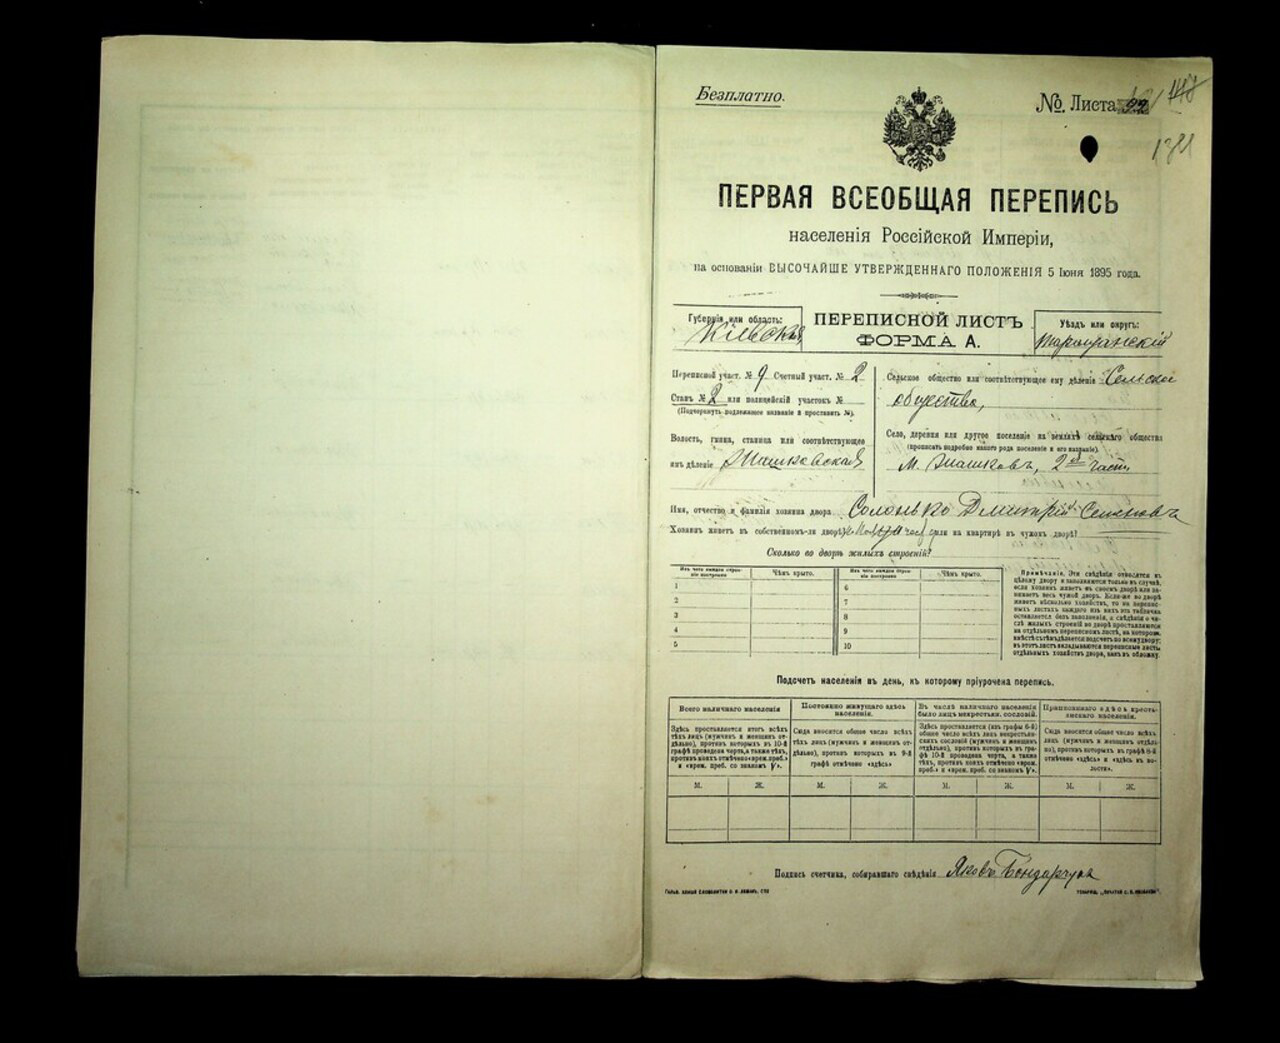 Безплатно.
№. Листа
ПЕРВАЯ ВСЕОБЩАЯ ПЕРЕПИСЬ
населенія Россійской Имперіи,
на основаніи ВЫСОЧАЙШЕ УТВЕРЖДЕННАГО ПОЛОЖЕНІЯ 5 Іюня 1895 года.
Губернія или область:
Кіевская
ПЕРЕПИСНОЙ ЛИСТЪ
ФОРМА А.
Уѣздъ или округъ:
Таращанскій
Переписной участ. № 9 Счетный участ. № 2
Станъ № 2 или полицейскій участокъ №
(Подчеркнуть подлежащее названіе и проставить №).
Волость, гмина, станица или соотвѣтствующее
имъ дѣленіе
Сельское общество или соотвѣтствующее ему дѣленіе Сельское
общество,
Село, деревня или другое поселеніе на земляхъ сельскаго общества
(прописать подробно какого рода поселеніе и его названіе).
м. 2 части
Имя, отчество и фамилія хозяина двора Солонько Дмитрій Семеновъ
Хозяинъ живетъ въ собственномъ-ли дворѣ или на квартирѣ въ чужомъ дворѣ?
Сколько во дворѣ жилыхъ строеній?
Изъ чего каждое строеніе построено
Чѣмъ крыто.
Изъ чего каждое строеніе построено
Чѣмъ крыто.
1
2
3
4
5
6
7
8
9
10
Примѣчаніе. Эти свѣдѣнія относятся къ
цѣлому двору и заполняются только въ случаѣ,
если хозяинъ живетъ въ своемъ дворѣ или занимаетъ
весь чужой дворъ. Если-же во дворѣ
живетъ нѣсколько хозяйствъ, то на переписныхъ
листахъ каждаго изъ нихъ эта табличка
оставляется безъ заполненія, а свѣдѣнія о числѣ
жилыхъ строеній во дворѣ проставляются
на отдѣльномъ переписномъ листѣ, на которомъ
вмѣстѣ съ тѣмъ дѣлается подсчетъ по всему двору;
въ этотъ листъ вкладываются переписные листы
отдѣльныхъ хозяйствъ двора, какъ въ обложку.
Подсчетъ населенія въ день, къ которому пріурочена перепись.
Всего наличнаго населенія
Здѣсь проставляется итогъ всѣхъ
тѣхъ лицъ (мужчинъ и женщинъ отдѣльно),
противъ которыхъ въ 10-й
графѣ проведена черта, а также тѣхъ,
противъ коихъ отмѣчено «врем. преб.»
и «врем. преб. со знакомъ V».
Постоянно живущаго здѣсь
населенія.
Сюда вносится общее число всѣхъ
тѣхъ лицъ (мужчинъ и женщинъ отдѣльно),
противъ которыхъ въ 9-й
графѣ отмѣчено «здѣсь»
Въ числѣ наличнаго населенія
было лицъ некрестьян. сословій.
Здѣсь проставляется (изъ графы 6-й)
общее число лицъ некрестьянскихъ
сословій (мужчинъ и женщинъ
отдѣльно), противъ которыхъ въ графѣ
10-й проведена черта, а также
тѣхъ, противъ коихъ отмѣчено «врем.
преб.» и «врем. преб. со знакомъ V».
Приписаннаго здѣсь крестьянскаго
населенія.
Сюда вносится общее число всѣхъ
лицъ (мужчинъ и женщинъ отдѣльно),
противъ которыхъ въ графѣ 8-й
отмѣчено «здѣсь» и «здѣсь въ волости».
М. Ж. М. Ж. М. Ж. М. Ж.
Подпись счетчика, собиравшаго свѣдѣнія Яковъ Бондарчукъ